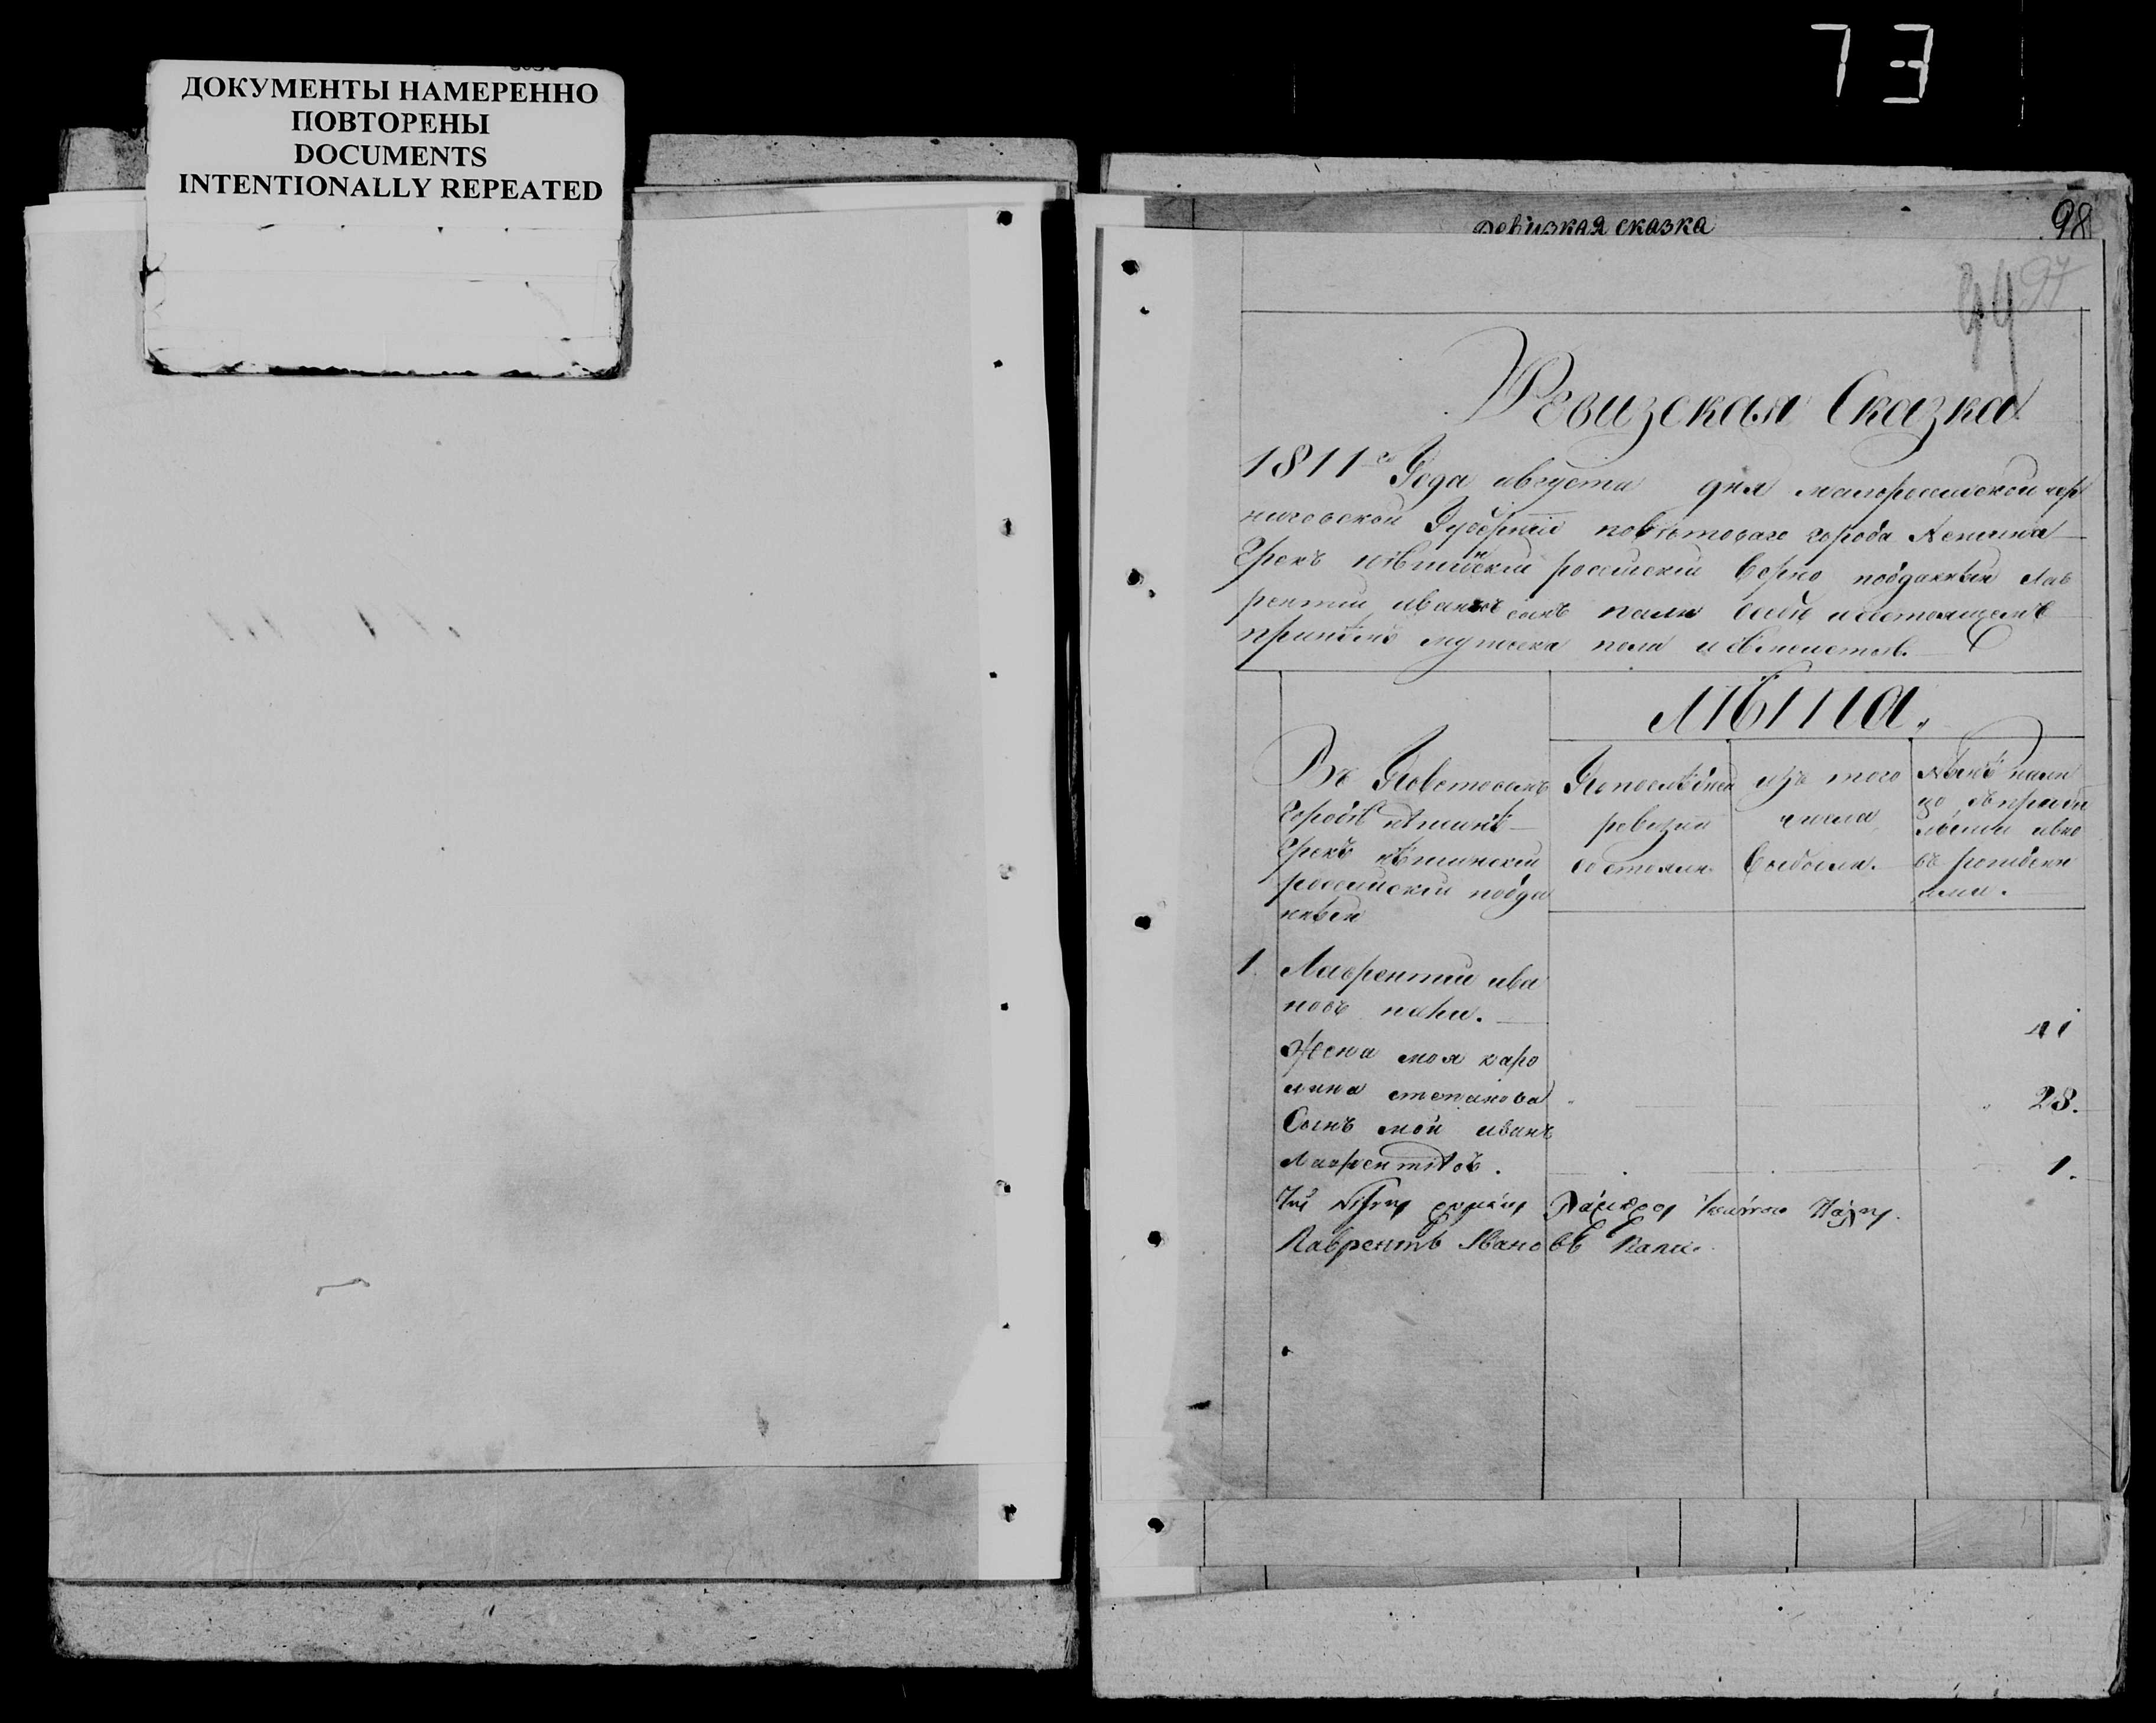 73
ДОКУМЕНТЫ НАМЕРЕННО
ПОВТОРЕНЫ
DOCUMENTS
INTENTIONALLY REPEATED
ревизкая сказка
98
97
Ревизская Сказка
1811го Года августа дня малороссийской чер
ниговской Губернии поветоваго города Нежина
Грек нежинский российский верно подданный Лав
рентий иванов сын пали
мужеска пола и женска
Лѣта.
Въ Поветовомъ
городѣ нѣжинѣ
Грекъ нѣжинскій
россійскій подда
нный
По последней
ревизии
состояли
изъ того
числа
выбыли.
Нынѣ нали
цо съ прибы
лыми и вно
въ рожденн
ыми.
1. Лаврентий ива
новъ пали.
41
Жена моя каро
лина степанова
28.
Сынъ мой иванъ
Лаврентіевъ.
1.
Лаврентъ Ивановъ Пали.